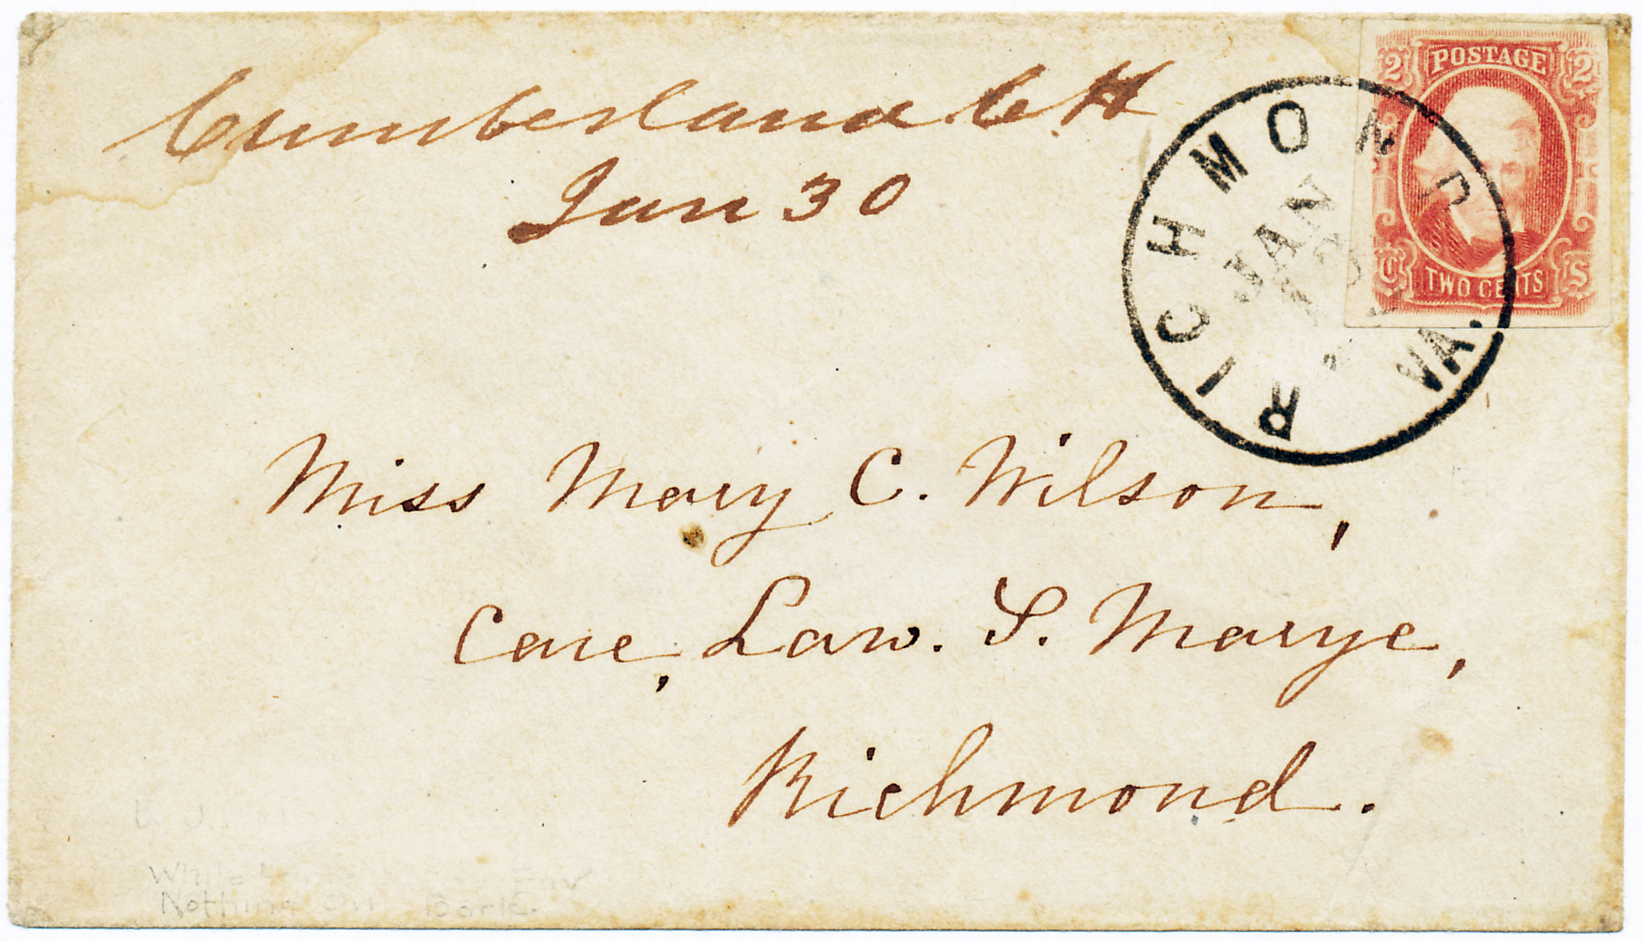 Cumberland C H
Jan 30
2 POSTAGE 2
CTS
TWO CENTS
RICHMOND VA.
JAN
Miss Mary C. Wilson,
Care, Law. S. Marye,
Richmond.
Nothing on Back.